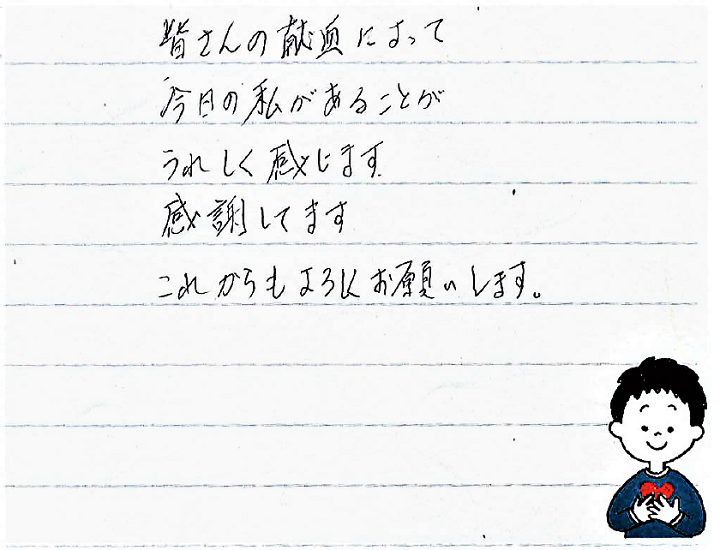 皆さんの献血によって
今日の私があることが
うれしく感じます
感謝してます
これからもよろしくお願いします。